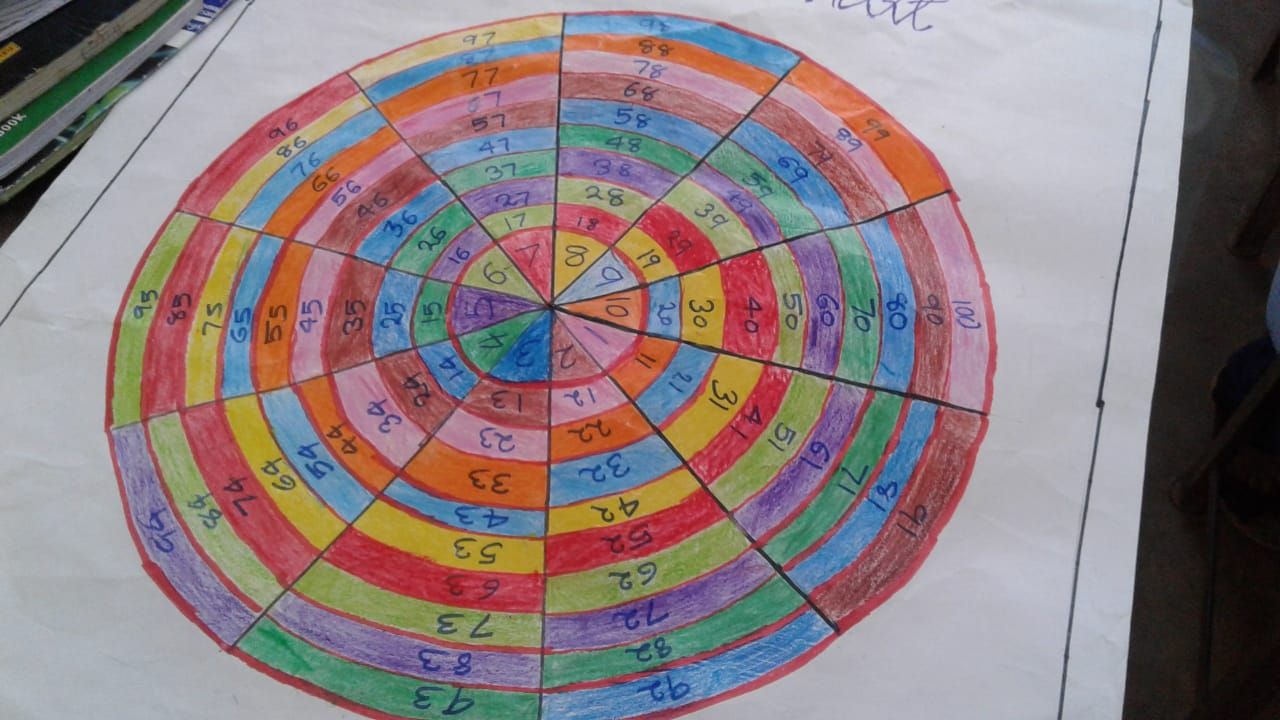 BOOK
1 2 3 4 5 6 7 8 9 10
11 12 13 14 15 16 17 18 19 20
21 22 23 24 25 26 27 28 29 30
31 32 33 34 35 36 37 38 39 40
41 42 43 44 45 46 47 48 49 50
51 52 53 54 55 56 57 58 59 60
61 62 63 64 65 66 67 68 69 70
71 72 73 74 75 76 77 78 79 80
81 82 83 84 85 86 87 88 89 90
91 92 93 94 95 96 97 98 99 100